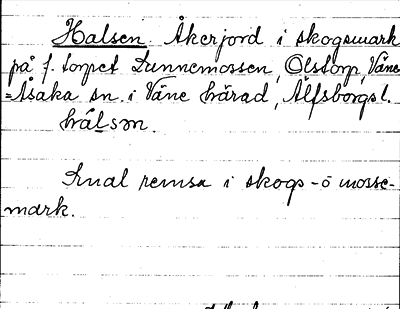 Halsen. Åkerjord i skogsmark
på f. torpet Sunnemossen, Olstorp, Väne
=Åsaka sn. i Väne härad, Älfsborgs l.
hálsən.
Smal remsa i skogs- o mosse-
mark.